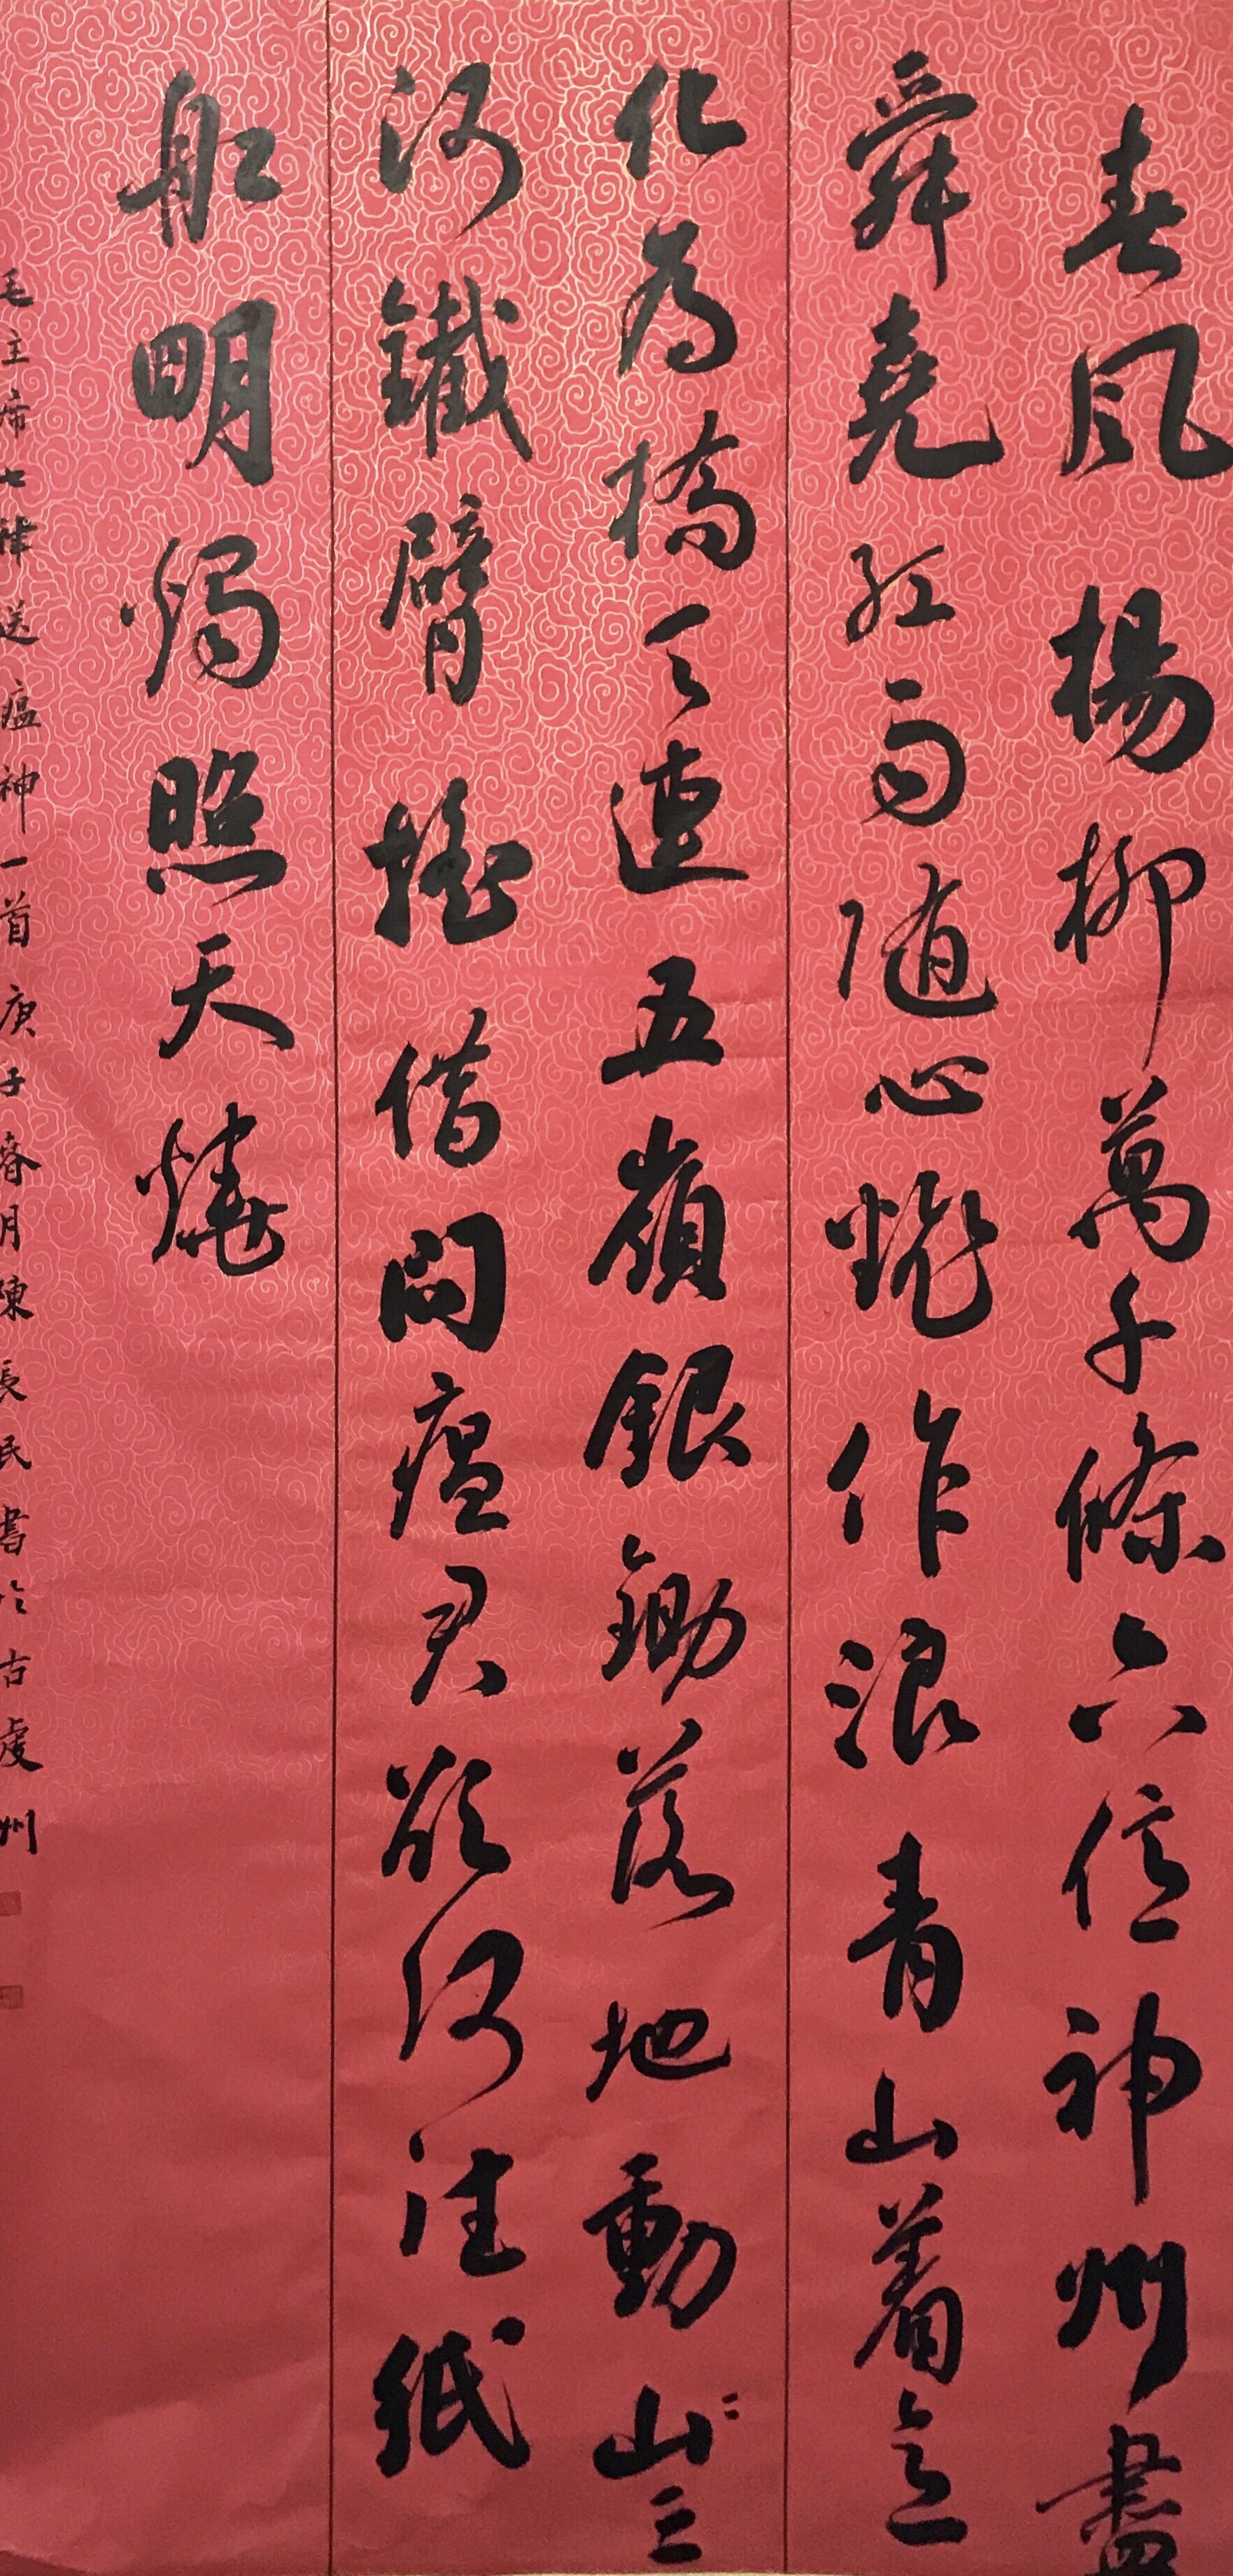 春風楊柳萬千條六億神州盡
舜堯紅雨随心翻作浪青山着意
化為橋天連五嶺銀鋤落地動山三
河鐵臂搖借問瘟君欲何往紙
船明燭照天燒
毛主席七律送瘟神一首庚子春月陳長民書於古虔州